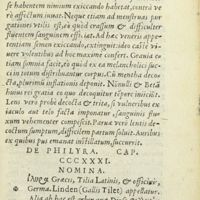 se habentem nimium exiccando habitat, contra ve
rò affectum iuuat. Neque etiam ad menstruas pur
gationes vtilis est, eò quòd crassum & difficulter
fluentem sanguinem efficiat. Ad hæc veneri appe-
tentiam semen exiccando, extinguit: ideo castè vi
uere volentibus ad hæc maximè confert. Grauia e
tiam somnia facit, eo quòd ex ea melancholici suc-
ci in totum distribuantur corpus. Cū mentha deco-
cta, plurimum insita deponit. Nonnulli & Betā
huius rei gratia ea quæ decoquitur iniecit.
Lens verò probè decocta & trita, si vulneribus ex
iaculo aut telo facta imponatur, sanguinis fluxum
vehementer compescit. Parua verò lentis de-
coctum sumptum, difficilem partum soluit. Auribus
ex quibus pus emanat instillatum, succurrit.
DE PHILYRA. CAP.
CCCXXXI.
NOMINA.
Græcè, Tilia Latinis, & officinis,
Germa. Linden (Gallis Tilet) appellatur.
Alia ab hac est